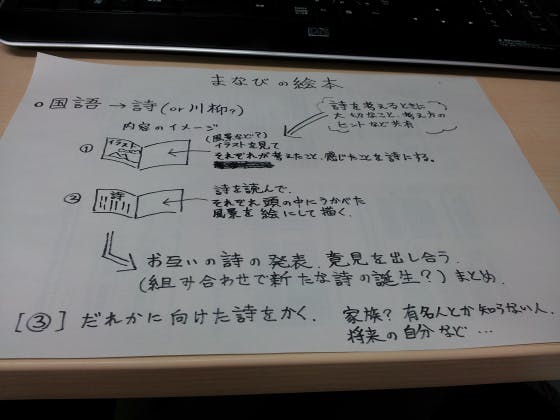 まなびの絵本
○国語→詩(or川柳?)
詩を考えるときに
大切なこと、考え方の
ヒントなど共有
内容のイメージ
① イラスト
(風景など?)
イラストを見て
それぞれが考えたこと、感じたことを詩とする。
② 詩
詩を読んで、
それぞれ頭の中にうかべた
風景を絵にして描く。
お互いの詩の発表、意見を出し合う。
(組み合わせで新たな詩の誕生?)まとめ、
[③]だれかに向けた詩をかく。
家族?有名人とか知らない人、
将来の自分など…
hp